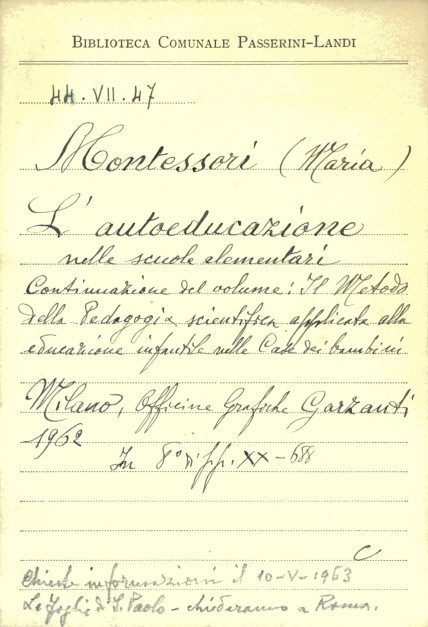 BIBLIOTECA COMUNALE PASSERINI-LANDI
44.VII.47
Montessori (Maria)
L'autoeducazione
nelle scuole elementari
Continuazione del volume: Il Metodo
della Pedagogia scientifica applicata alla
educazione infantile nelle Case dei bambini
Milano, Officine Grafiche Garzanti
1962
In 8° di pp. XX-688
C
Chieste informazioni il 10-V-1963
Le figlie di S. Paolo - chiederanno a Roma.